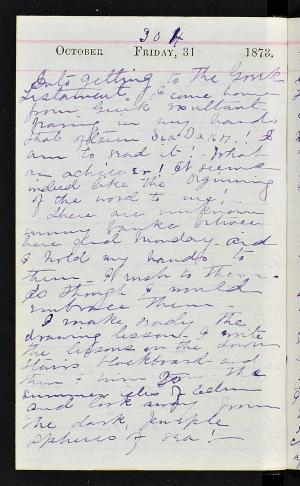 304
OCTOBER FRIDAY, 31 1873.
getting to the Greek
Testament, I come home
from Greek exultant
in my hands
that
am to read it! What
an achiever! It seems
indeed like the beginning
of the word to me!
There are unknown
between
here and Monday and
I hold my hands to
them - I rush to them -
as though I would
embrace them -
I make ready the
drawing lesson, I write
the lessons on the down
stairs blackboard and
then I turn to the
summer of Eden
and look away from
the dark, people
spheres of sea!